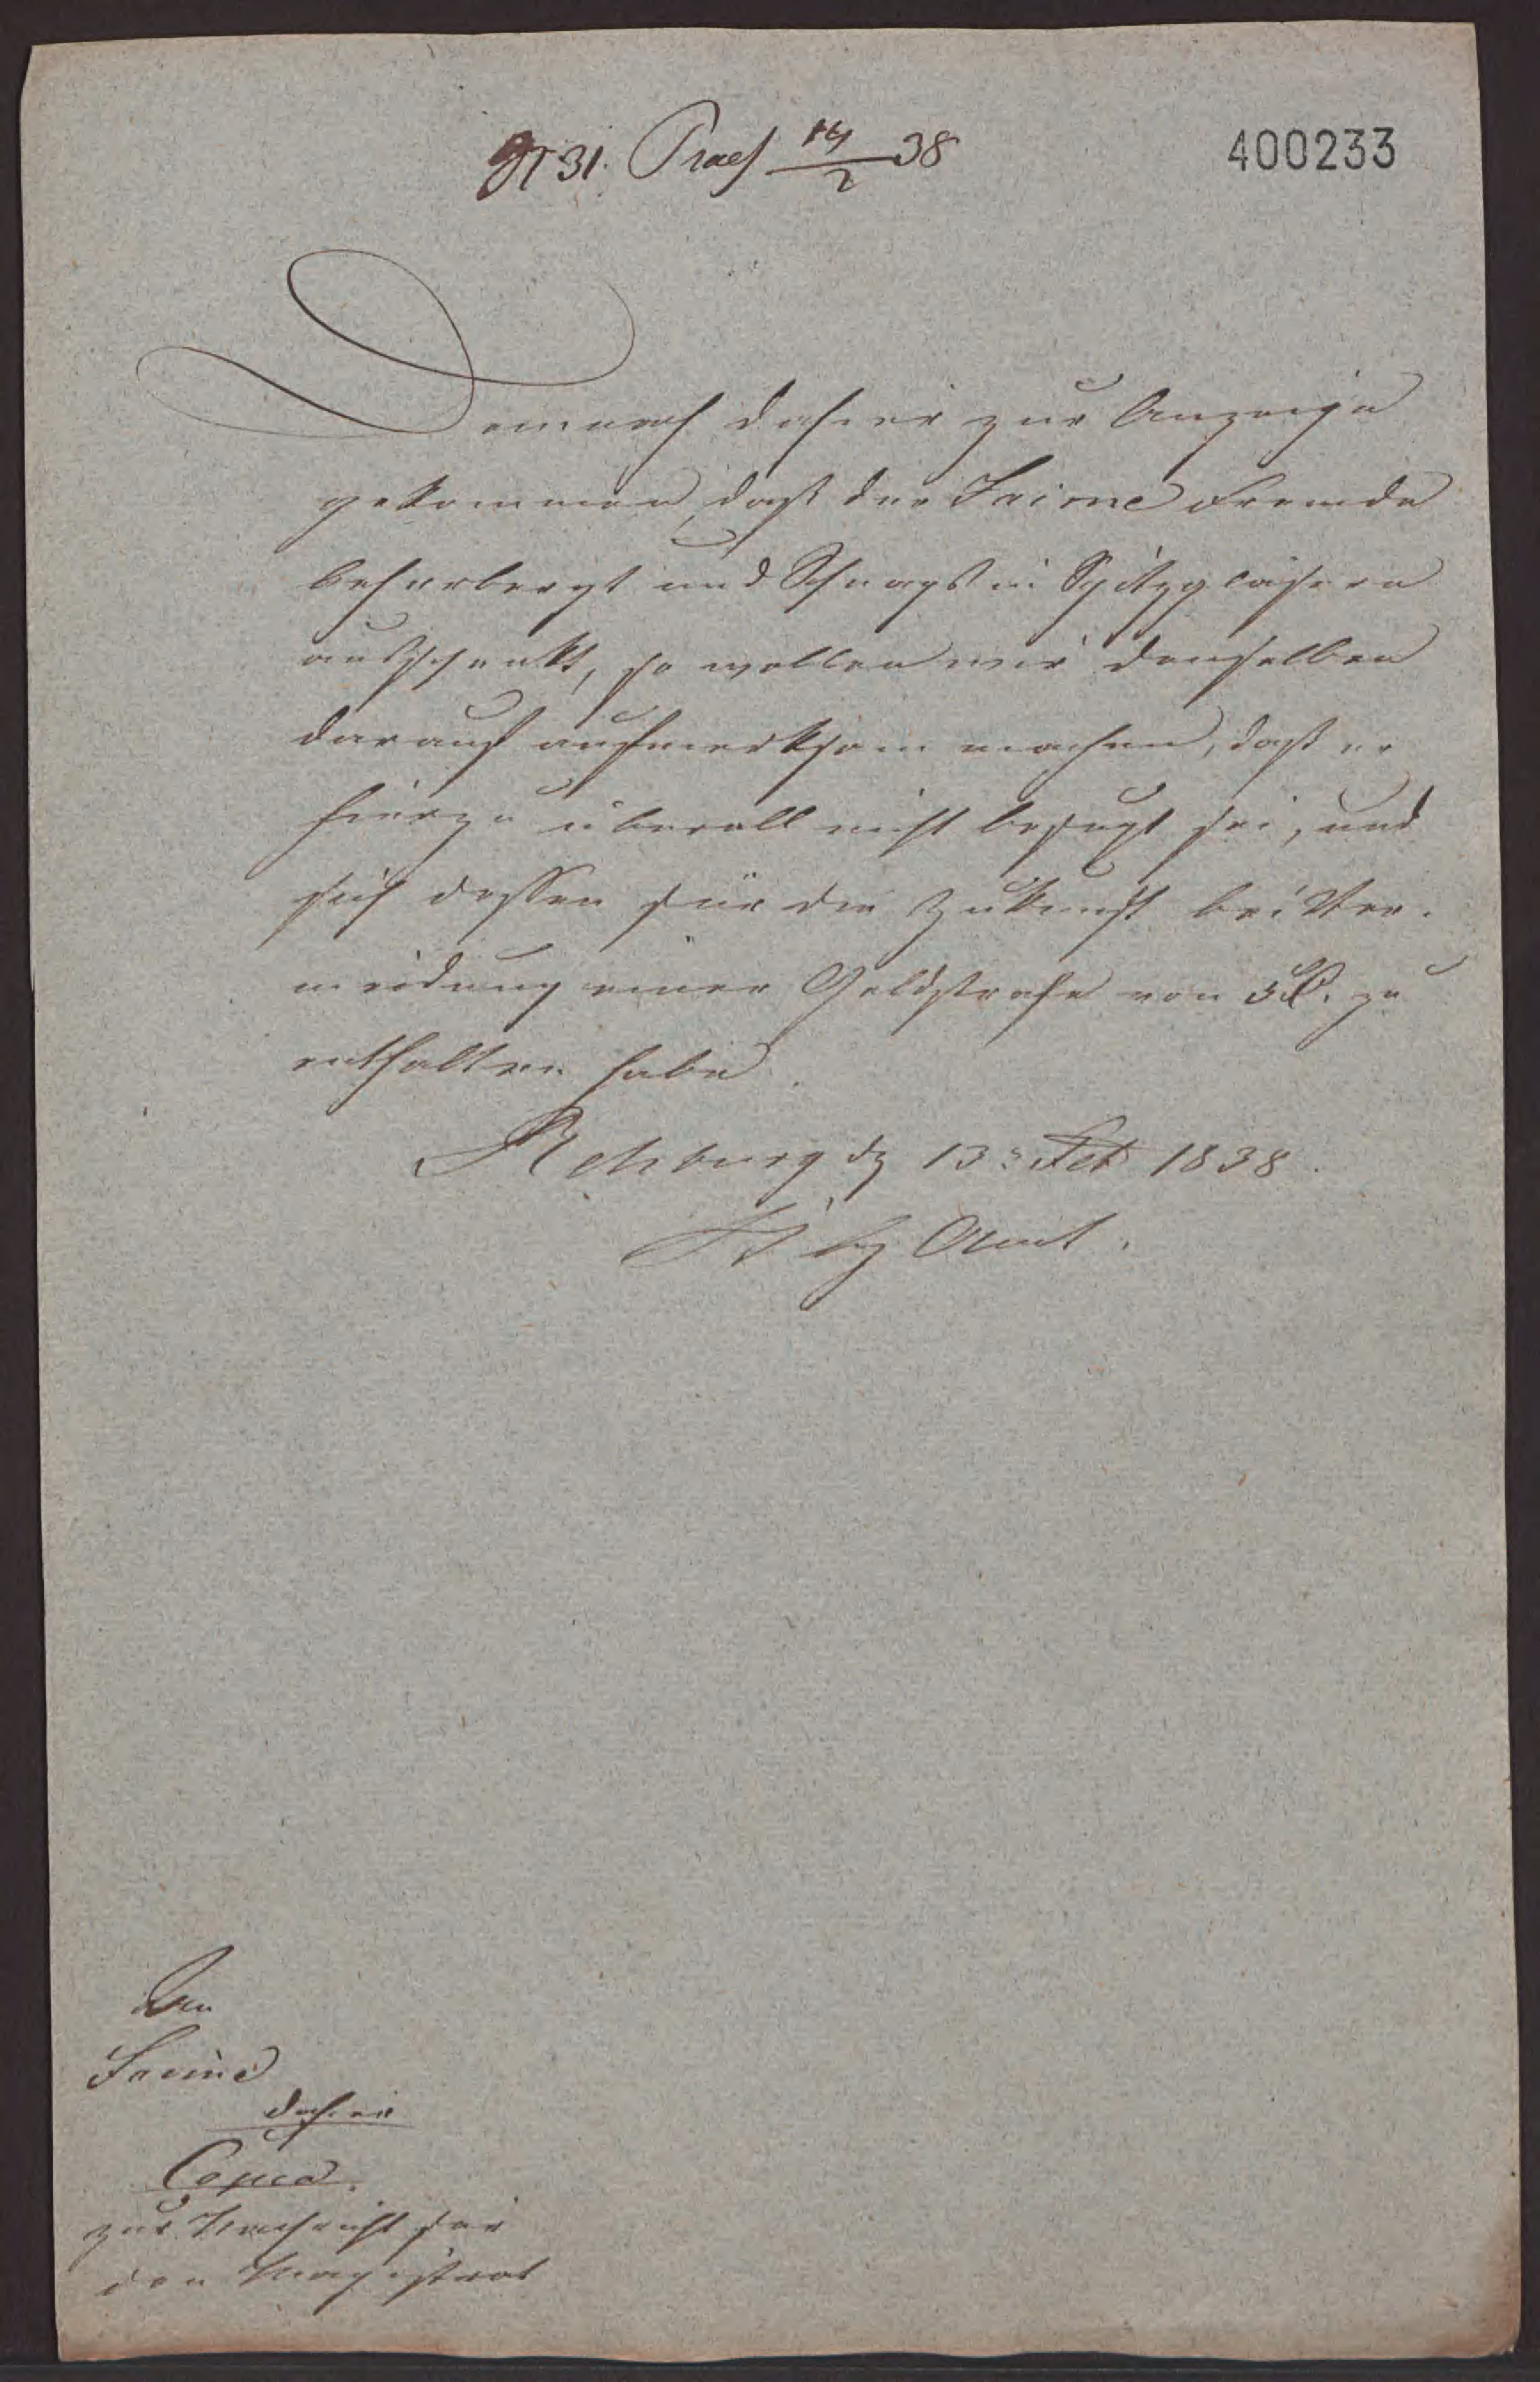 N 31. Praes 14/2 38
400233
Demnach dahier zur Anzeige
gekommen, daß der Freime Fremde
beherbergt und Schnaps in Spitzgläsern
ausschenkt, so wollen wir denselben
darauf aufmerksam machen, daß er
hierzu überall nicht befugt sei, und
sich dessen für die Zukunft bei Ver-
meidung einer Geldstrafe von 5 zu
enthalten habe.
Rehburg d 13 Feb 1838.
Amt.
An
dahier
Copia
zur Nachricht für
den Magistrat